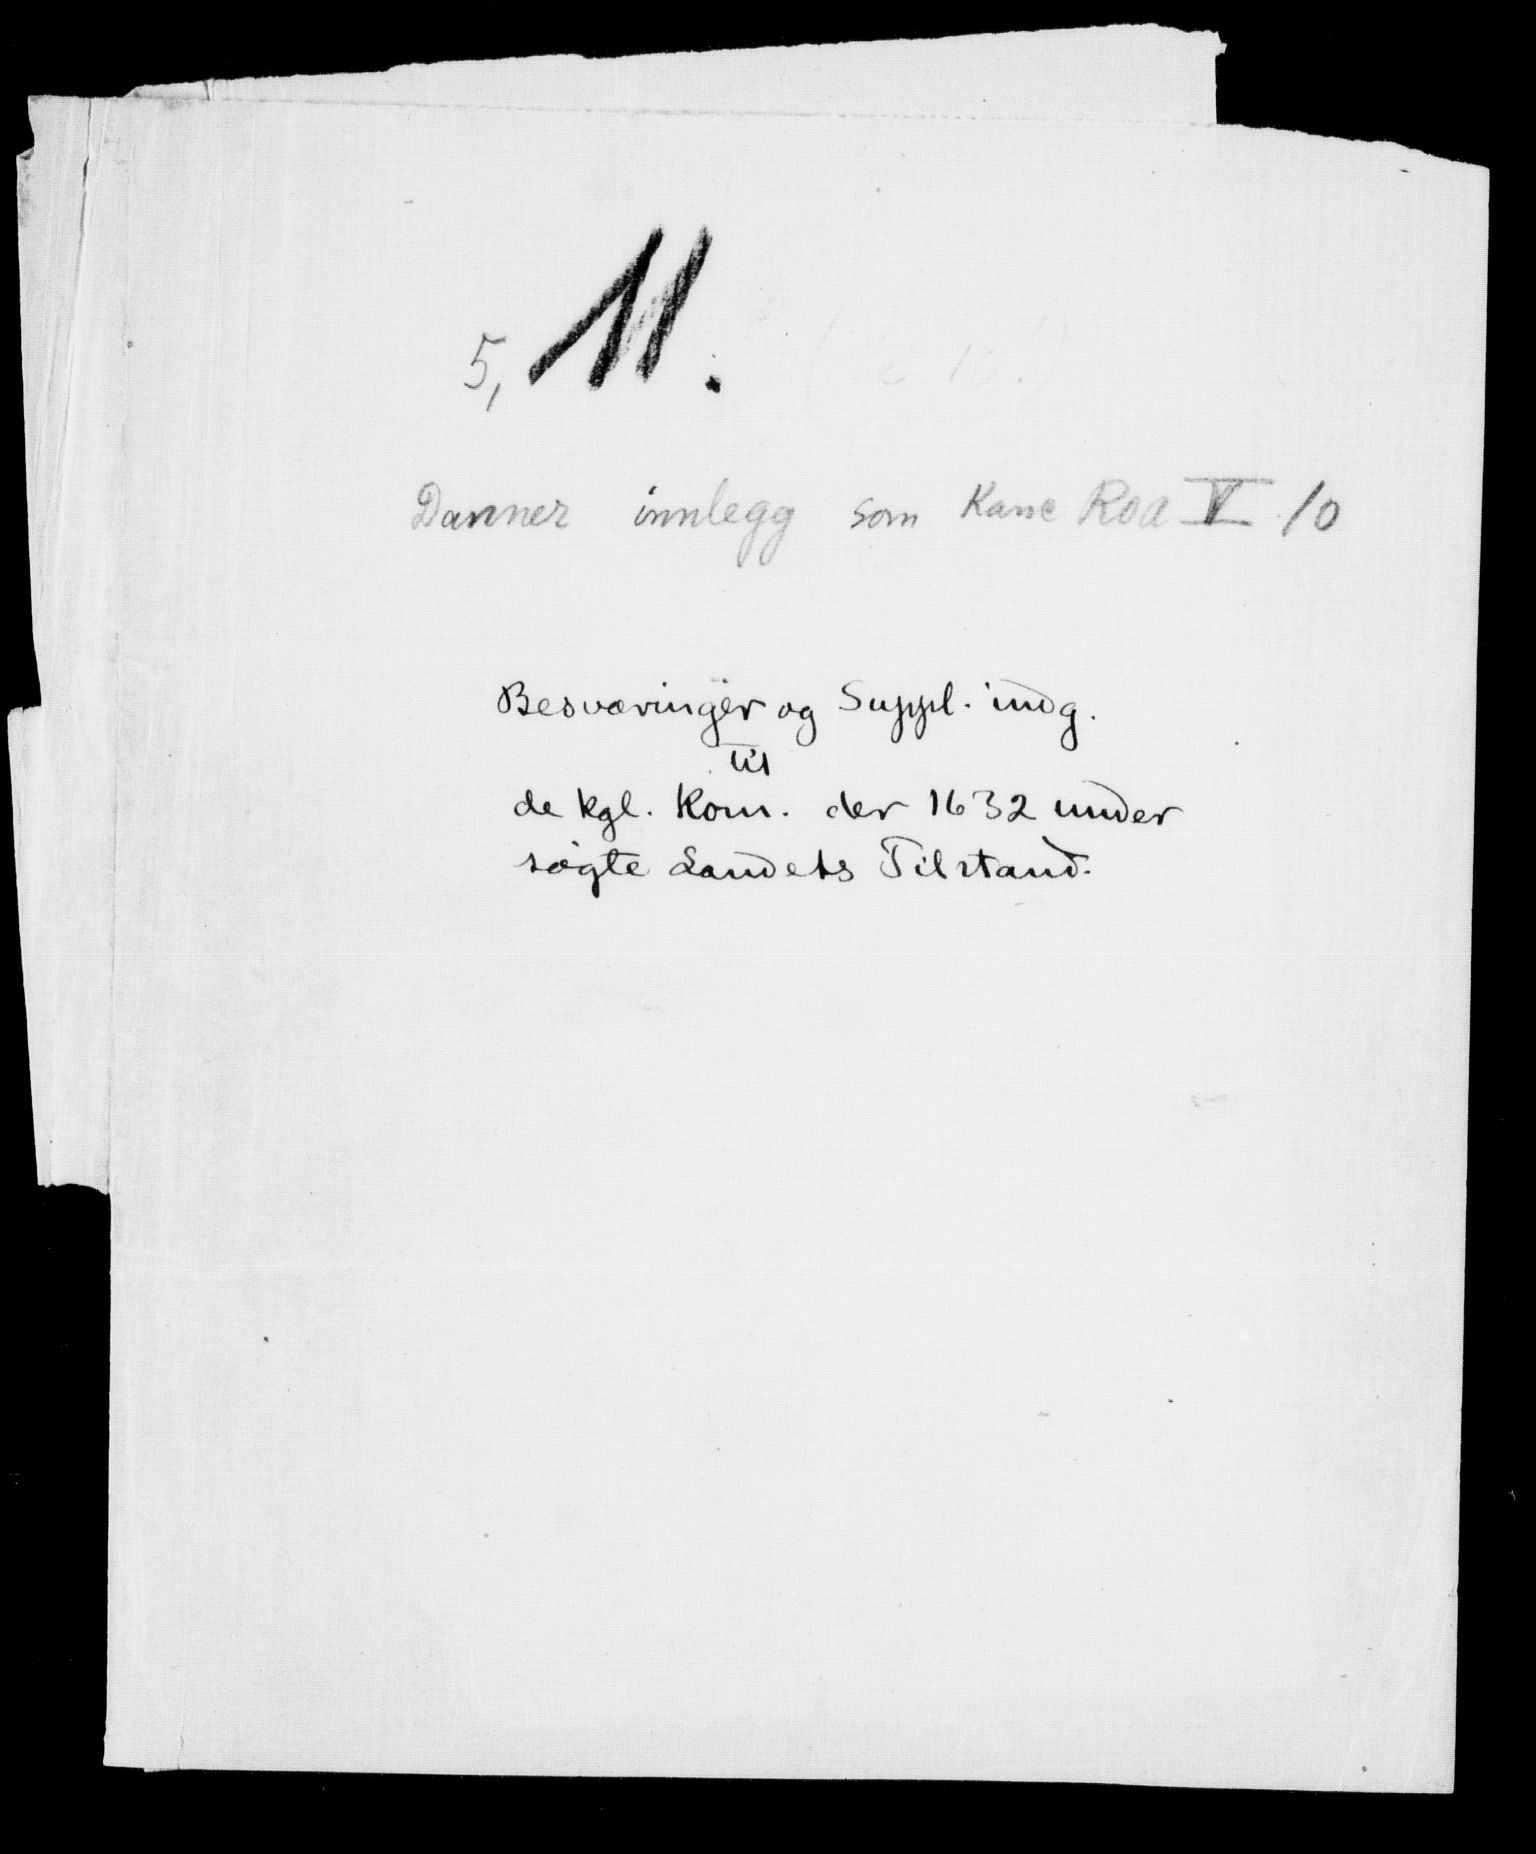 5, 11.
Danner innlegg som Kanc Roa V 10
Besværinger og Suppl. indg.
til
de kgl. Kom. der 1632 under
søgte Landets Tilstand.